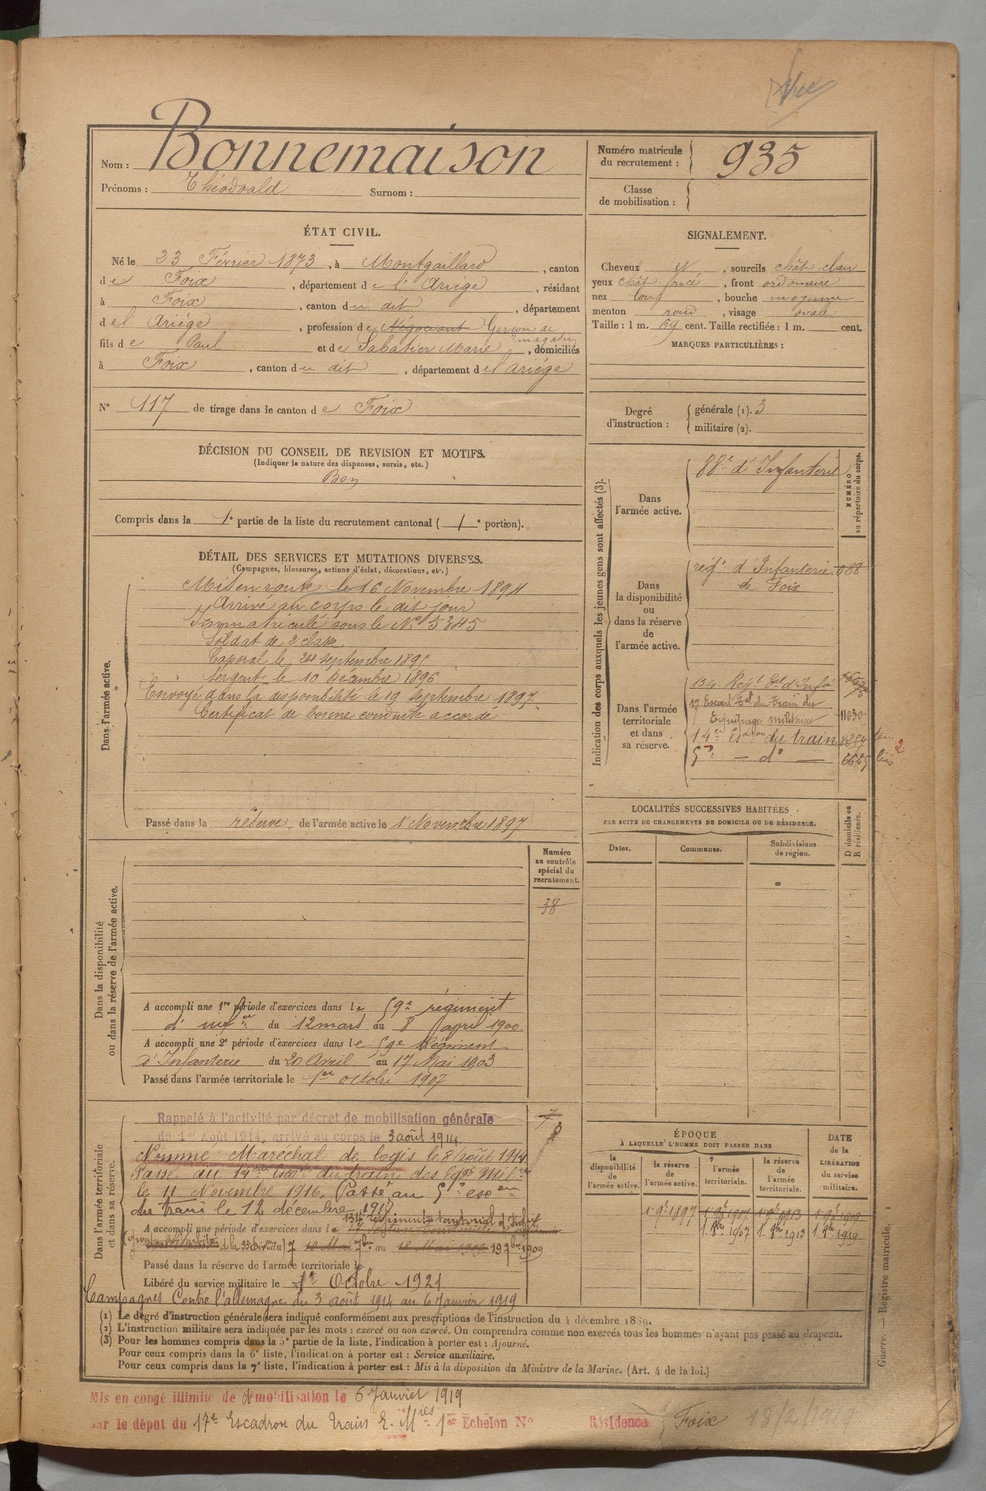 Nom : Bonnemaison
Prénoms : Théodoald Surnom :
Numéro matricule
du recrutement : 935
Classe
de mobilisation :
ÉTAT CIVIL.
Né le 23 Février 1873, à Montgaillard, canton
de Foix, département de l'Ariége, résidant
à Foix, canton du dit, département
d el Ariége, profession de Négociant Garçon de
magasin
fils de Paul et de Sabatier Marie, domiciliés
à Foix, canton du dit, département de l'ariége
N° 117 de tirage dans le canton de Foix
SIGNALEMENT.
Cheveux et, sourcils chât. clair
yeux chât foncé, front ordinaire
nez long, bouche moyenne
menton rond, visage ovale
Taille : 1 m. 59 cent. Taille rectifiée : 1 m. cent.
MARQUES PARTICULIÈRES :
Degré
d'instruction :
générale (1). 3
militaire (2).
DÉCISION DU CONSEIL DE REVISION ET MOTIFS.
(Indiquer la nature des dispenses, sursis, etc.)
Bon
Compris dans la 1e partie de la liste du recrutement cantonal (1e portion).
DÉTAIL DES SERVICES ET MUTATIONS DIVERSES.
(Campagnes, blessures, actions d'éclat, décorations, etc.)
Dans l'armée active.
Mis en route le 16 Novembre 1894
Arrivé au corps le dit jour
Immatriculé sous le N° 5345
Soldat de 2e classe
Caporal le 24 septembre 1895
Sergent le 10 Décembre 1896
Envoyé dans la disponibilité le 19 Septembre 1897
Certificat de bonne conduite accordé
Passé dans la réserve de l'armée active le 1 Novembre 1897
Indication des corps auxquels les jeunes gens sont affectés (3).
Dans
l'armée active.
88e d'Infanterie
NUMÉRO
au répertoire du corps.
Dans
la disponibilité
ou
dans la réserve
de
l'armée active.
regt d'Infanterie 088
de Foix
Dans l'armée
territoriale
et dans
sa réserve.
134 Regt tal d'Infie
17 Escad tal du train des
Equipages militaires 11030
14e Eson du train
5e — do —
LOCALITÉS SUCCESSIVES HABITÉES
PAR SUITE DE CHANGEMENTS DE DOMICILE OU DE RÉSIDENCE.
Dates.
Communes.
Subdivisions
de région.
D domicile ou
R résidence.
Numéro
au contrôle
spécial du
recrutement.
38
Dans la disponibilité
ou dans la réserve de l'armée active.
A accompli une 1re période d'exercices dans le 59e régiment
d'infie du 12 mars au 8 april 1900
A accompli une 2e période d'exercices dans le 59e Régiment
d'Infanterie du 20 Avril au 17 Mai 1903
Passé dans l'armée territoriale le 1er octobre 1907
Dans l'armée territoriale
et dans sa réserve.
Rappelé à l'activité par décret de mobilisation générale
du 1er Août 1914, arrivé au corps le 3 août 1914
Nommé Maréchal de logis le 8 août 1914
Passé au 14eme Escon du train des Eqges Milres
le 11 Novembre 1916. Passé au 5e escon
du train le 12 décembre 1917
134e Régiment territorial d'Infie
A accompli une période d'exercices dans le
du 7 7bre au 7bre 1909
Passé dans la réserve de l'armée territoriale le
Libéré du service militaire le 1er Octobre 1921
Campagnes Contre l'allemagne du 3 août 1914 au 6 Janvier 1919
ÉPOQUE
À LAQUELLE L'HOMME DOIT PASSER DANS
DATE
de la
LIBÉRATION
du service
militaire.
la
disponibilité
de l'armée active.
la réserve
de
l'armée active.
l'armée
territoriale.
la réserve
de
l'armée
territoriale.
1 9e 1897
1. 8bre 1907 1. 8bre 1913 1. 8bre 1919
(1) Le degré d'instruction générale sera indiqué conformément aux prescriptions de l'instruction du 4 décembre 1889.
(2) L'instruction militaire sera indiquée par les mots : exercé ou non exercé. On comprendra comme non exercés tous les hommes n'ayant pas passé au drapeau.
(3) Pour les hommes compris dans la 5e partie de la liste, l'indication à porter est : Ajourné.
Pour ceux compris dans la 6e liste, l'indication à porter est : Service auxiliaire.
Pour ceux compris dans la 7e liste, l'indication à porter est : Mis à la disposition du Ministre de la Marine. (Art. 4 de la loi.)
Guerre. — Registre matricule. 1
Mis en congé illimité de démobilisation le 6 Janvier 1919
par le dépôt du 17e Escadron du Train E. Mres 1er Echelon N° Résidence Foix 18/2/1919